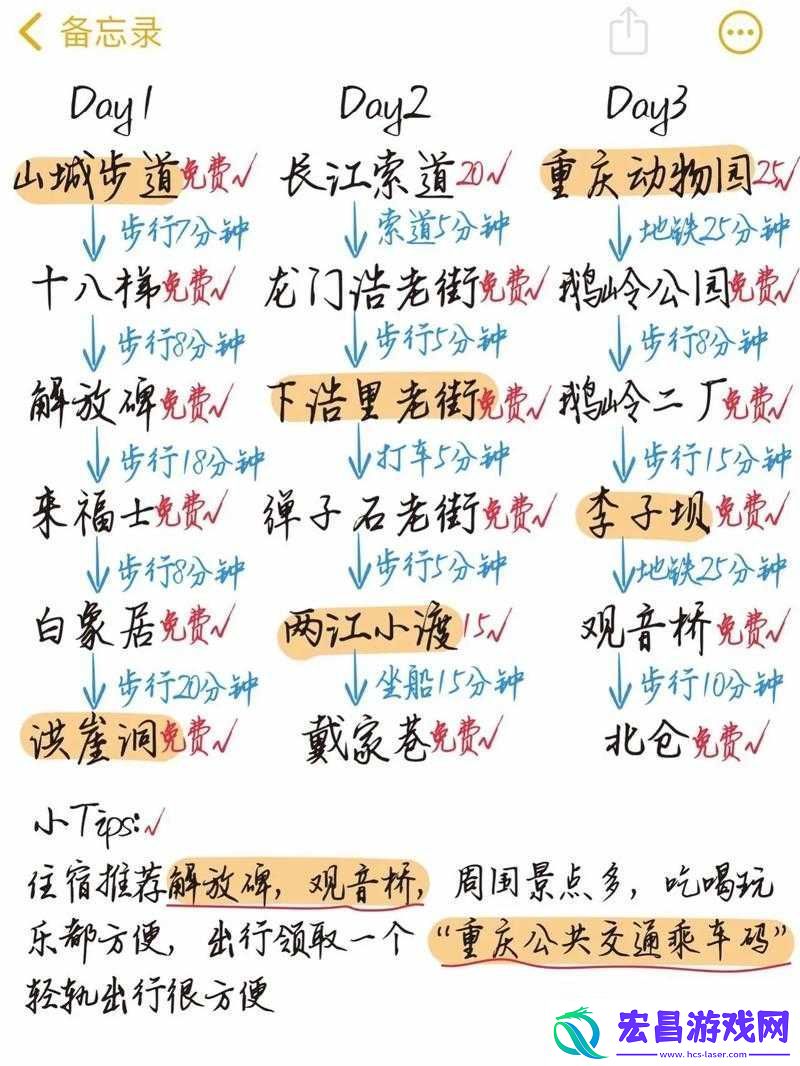 备忘录
Day1 Day2 Day3
山城步道免费 长江索道20 重庆动物园25
步行7分钟 索道5分钟 地铁25分钟
十八梯免费 龙门浩老街免费 鹅岭公园免费
步行8分钟 步行5分钟 步行8分钟
解放碑免费 下浩里老街免费 鹅岭二厂免费
步行18分钟 打车5分钟 步行15分钟
来福士免费 弹子石老街免费 李子坝免费
步行8分钟 步行5分钟 地铁25分钟
白象居免费 两江小渡15 观音桥免费
步行20分钟 坐船15分钟 步行10分钟
洪崖洞免费 戴家巷免费 北仓免费
小Tips:
住宿推荐解放碑，观音桥，周围景点多，吃喝玩
乐都方便，出行领取一个“重庆公共交通乘车码”
轻轨出行很方便
宏昌游戏网
www.hcs-laser.com